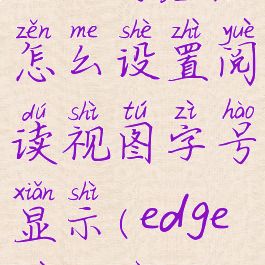 zěn me shè zhì yuè
怎么设置阅
dú shì tú zì hào
读视图字号
xiǎn shì
显示(edge